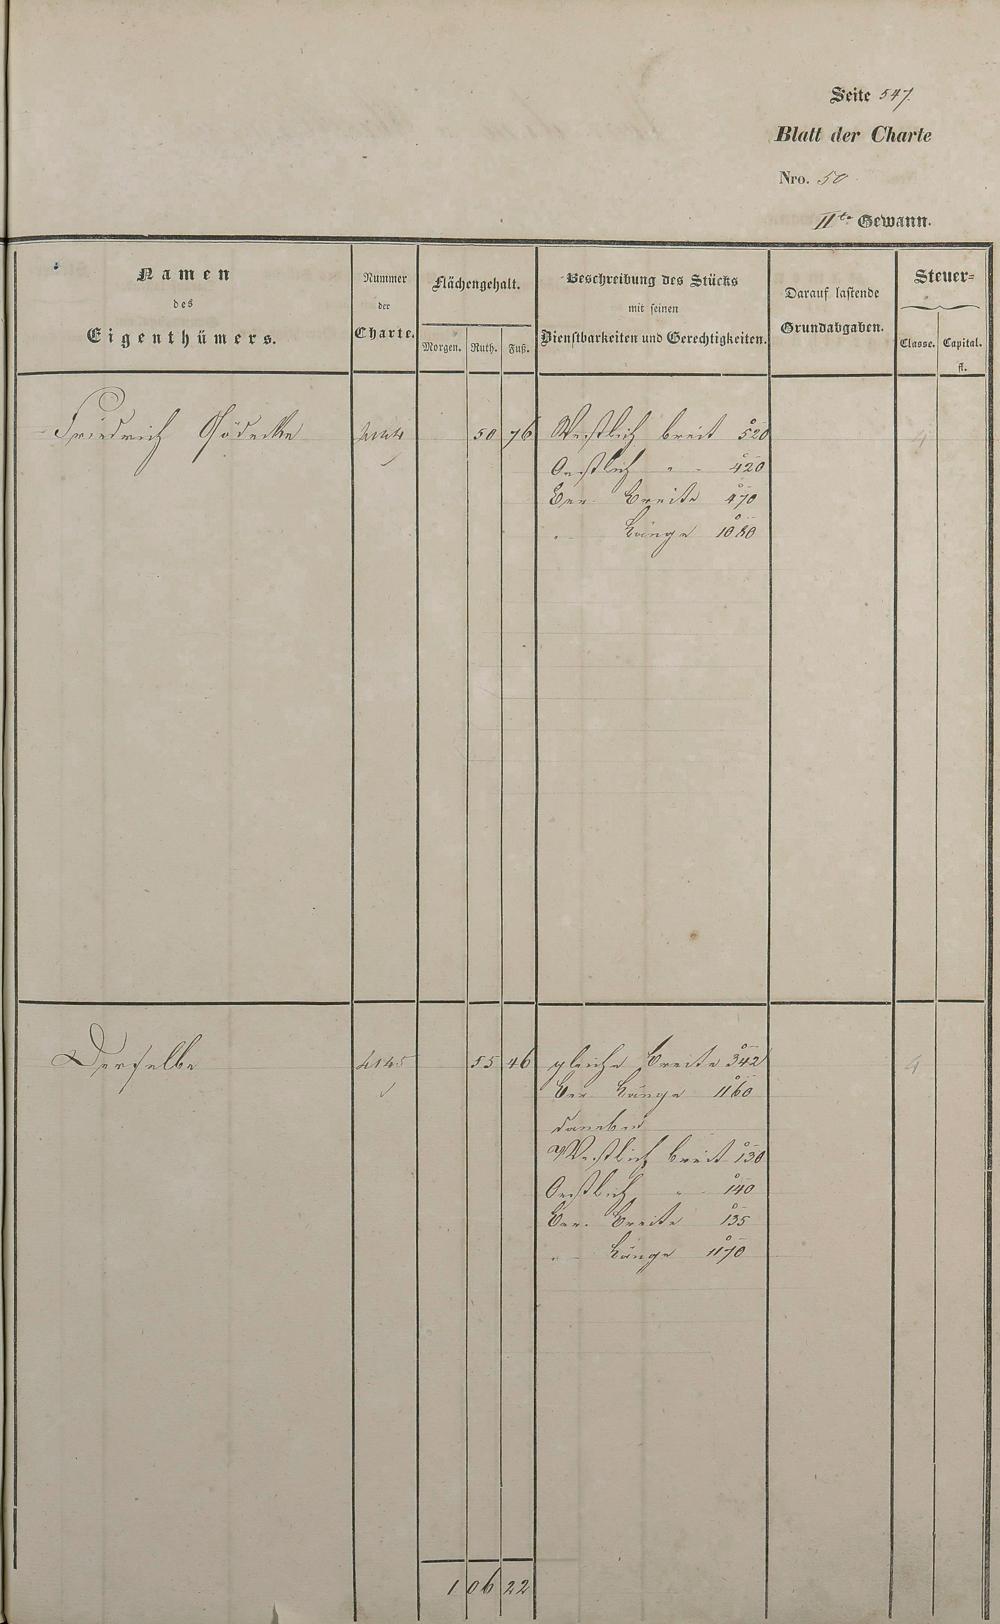 Seite 547.
Blatt der Charte
Nro. 50
IIte Gewann.
Namen
des
Eigenthümers.
Nummer
der
Charte.
Flächengehalt.
Morgen. Ruth. Fuß.
Beschreibung des Stücks
mit seinen
Dienstbarkeiten und Gerechtigkeiten.
Darauf lastende
Grundabgaben.
Steuer-
Classe. Capital.
fl.
Friedrich Gödecke 4144 50 76 Westlich breit 520 4
Oestlich " - 420
Ver. Breite 470
" Länge 1080
Derselbe 4145 55 46 gleiche Breite 342 4
Ver. Länge 1160
daneben
Westlich breit 130
Oestlich " 140
Ver. Breite 135
" Länge 1170
1 06 22